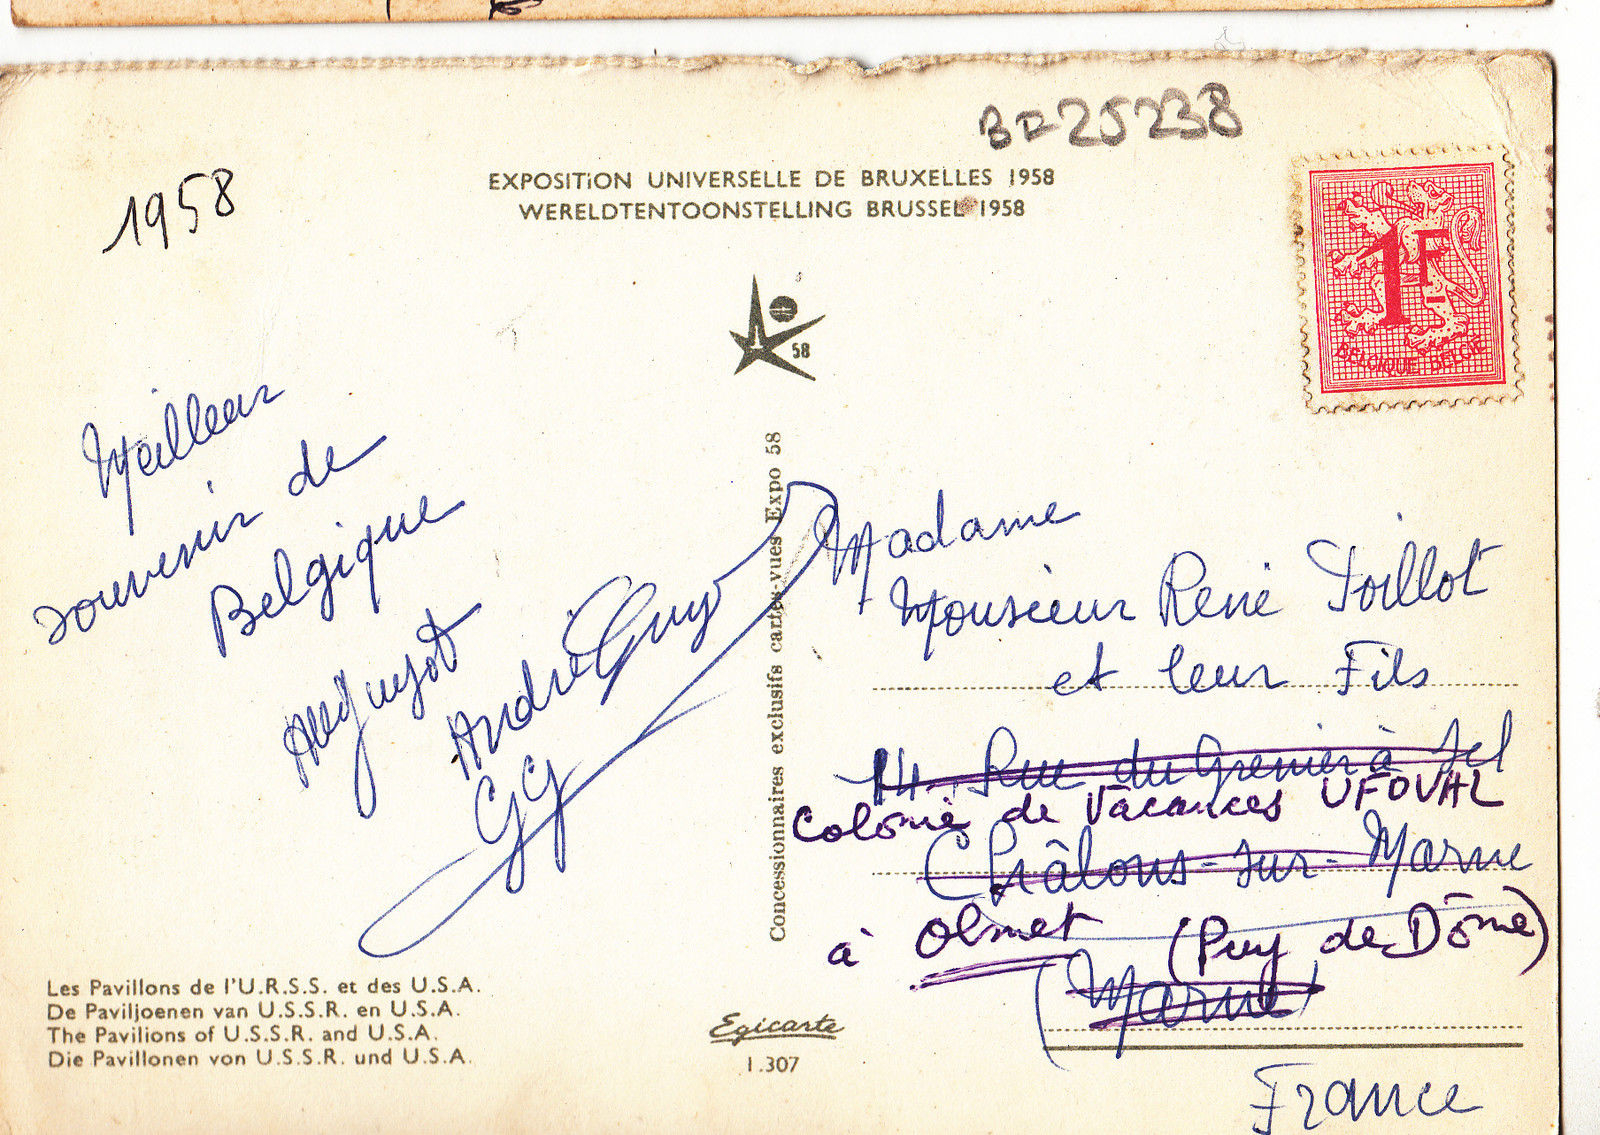 BR25238
1958
EXPOSITION UNIVERSELLE DE BRUXELLES 1958
WERELDTENTOONSTELLING BRUSSEL 1958
58
1F
BELGIQUE-BELGIE
Meilleur
souvenir de
Belgique
André Guy
GG
Concessionnaires exclusifs cartes-vues Expo 58
Madame
Monsieur René Poillot
et leur Fils
14, Rue du Grenier à Sel
Colonie de Vacances UFOVAL
Châlons-sur-Marne
à Olmet (Puy de Dôme)
(Marne)
France
Les Pavillons de l'U.R.S.S. et des U.S.A.
De Paviljoenen van U.S.S.R. en U.S.A.
The Pavilions of U.S.S.R. and U.S.A.
Die Pavillonen von U.S.S.R. und U.S.A.
Egicarte
1.307